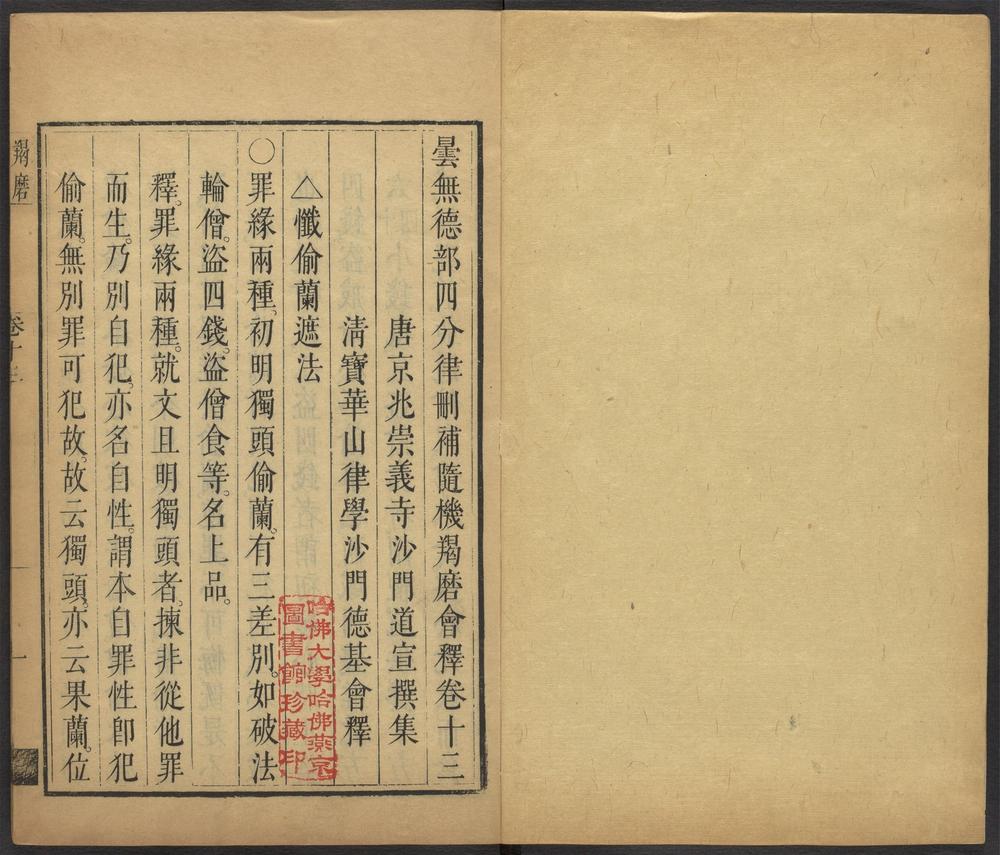 曇無德部四分律刪補隨機羯磨會釋卷十三
唐京兆崇義寺沙門道宣撰集
清寶華山律學沙門德基會釋
△懺偷蘭遮法
○罪緣兩種。初明獨頭偷蘭。有三差別。如破法
輪僧。盜四錢。盜僧食等。名上品。
釋。罪緣兩種。就文且明獨頭者。揀非從他罪
而生。乃別自犯。亦名自性。謂本自罪性卽犯
偷蘭。無別罪可犯故。故云獨頭。亦云果蘭。位
羯磨
卷十三
一
哈佛大學哈佛燕京
圖書館珍藏印